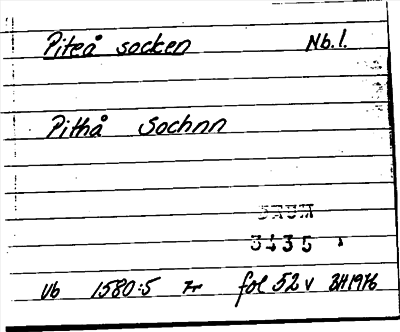 Piteå socken Nb.l.
Pithå Sochnn
Vb 1580:5 fol 52 v BH1976